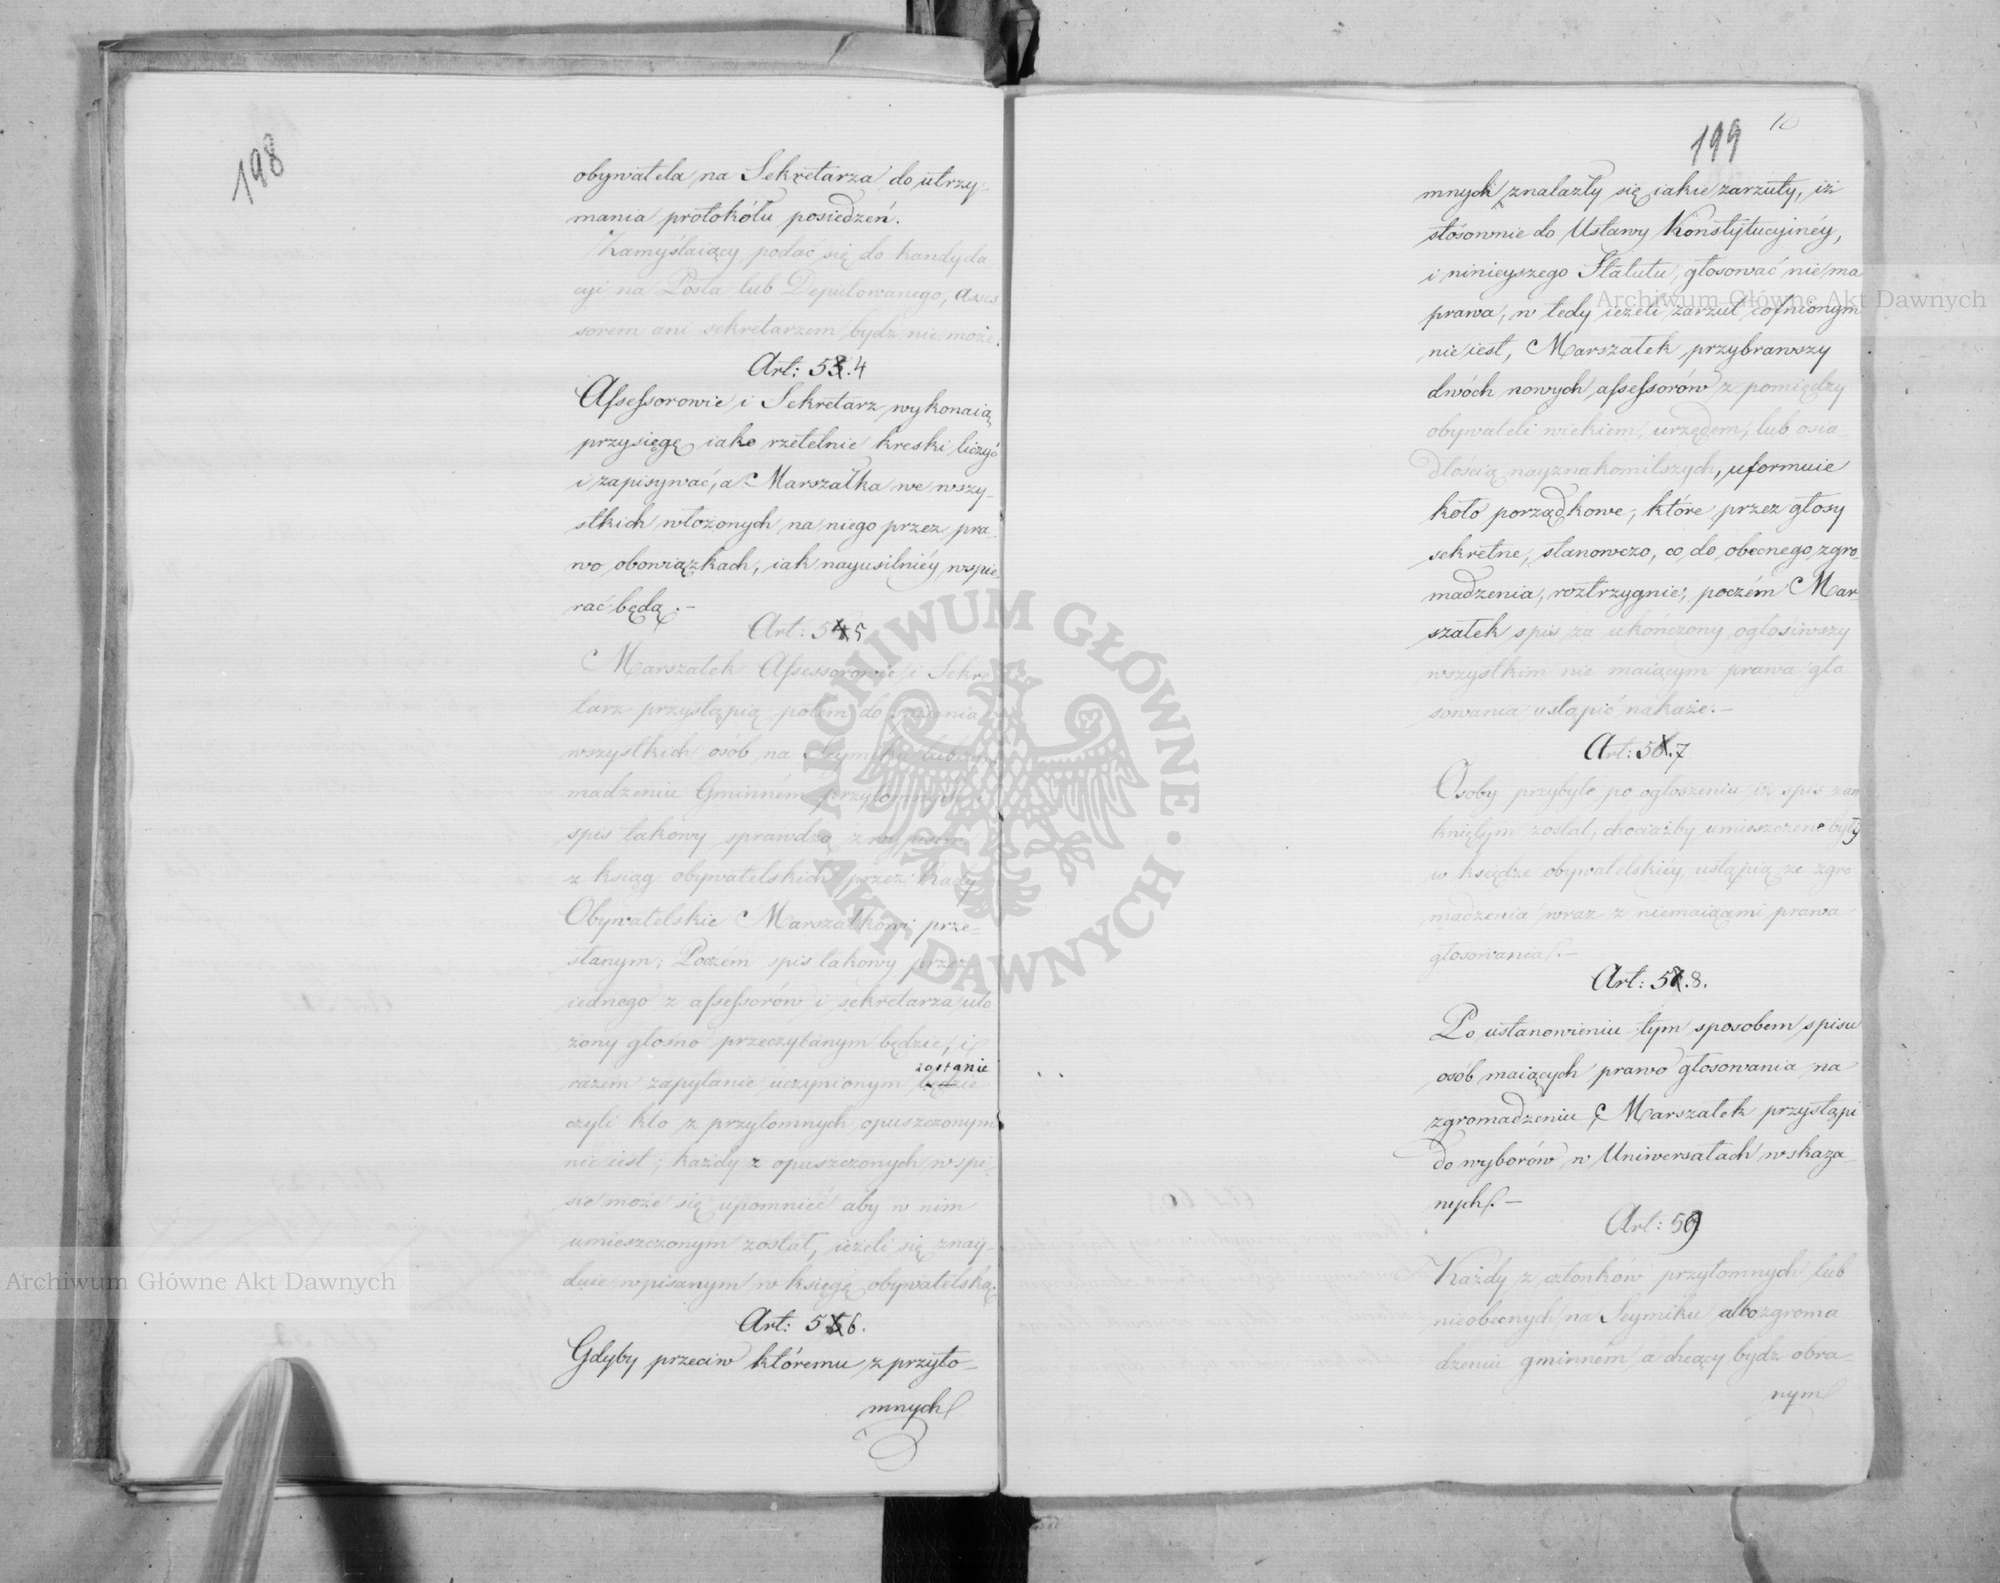 198
obywatela na Sekretarza do utrzy-
mania protokółu posiedzeń.
Zamyślaiący podać się do kandyda
cyi na Posła lub Deputowanego, asses
sorem ani sekretarzem bydź nie może.
Art: 53.4
Assessorowie i Sekretarz wykonaią
przysięgę iako rzetelnie kreski liczyć
i zapisywać, a Marszałka we wszy-
stkich włożonych na niego przez pra-
wo obowiązkach, iak nayusilniéy wspie-
rać będą.-
Art: 545
Marszałek Assessorowie i Sekre
tarz przystąpią potem do spisania
wszystkich osób na Seymiku lub zgro
madzeniu Gminném przytomnych i
spis takowy sprawdzą z wypisem
z ksiąg obywatelskich przez Rady
Obywatelskie Marszałkowi prze-
słanym; Poczém spis takowy przez
iednego z assessorów i sekretarza uło
żony głośno przeczytanym będzie, i
zostanie
razem zapytanie uczynionym będzie
czyli kto z przytomnych opuszczonym
nie iest; każdy z opuszczonych w spi
sie może się upomnieć aby w nim
umieszczonym został, ieżeli się znay-
duie wpisanym w księgę obywatelską.
Art: 556.
Gdyby przeciw któremu z przyto-
mnych
199
10
mnych znalazły się iakie zarzuty, iż
stosownie do Ustawy Konstytucyinéy,
i ninieyszego Statutu, głosować nie ma
prawa, w tedy ieżeli zarzut cofnionym
nie iest, Marszałek przybrawszy
dwóch nowych assessorów z pomiędzy
obywateli wiekiem, urzędem, lub osia-
dłością nayznakomitszych, uformuie
koło porządkowe, które przez głosy
sekretne, stanowczo, co do obecnego zgro
madzenia, roztrzygnie; poczém Mar-
szałek spis za ukończony ogłosiwszy
wszystkim nie maiącym prawa gło
sowania ustąpić nakaże.-
Art: 56.7
Osoby przybyłe po ogłoszeniu iż spis zam
kniętym został, chociażby umieszczone były
w księdze obywatelskiéy, ustąpią ze zgro
madzenia wraz z niemaiącemi prawa
głosowania.-
Art: 57.8.
Po ustanowieniu tym sposobem spisu
osób maiących prawo głosowania na
zgromadzeniu, Marszałek przystąpi
do wyborów w Uniwersałach wskaza-
nych.-
Art: 59
Każdy z członków przytomnych lub
nieobecnych na Seymiku albo zgroma
dzeniu gminném a chcący bydź obra-
nym
Archiwum Główne Akt Dawnych
Archiwum Główne Akt Dawnych
ARCHIWUM GŁÓWNE · AKT DAWNYCH ·